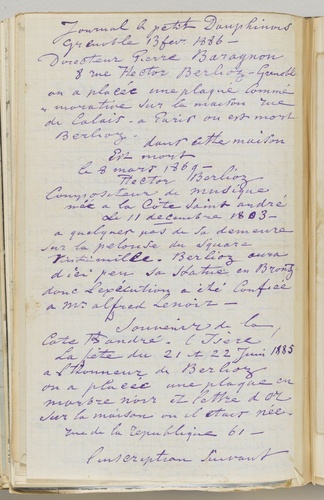 Journal le petit Dauphinois
Grenoble 13 fevr 1886 -
Directeur Pierre Baragnon
8 rue Hector Berlioz - Grenoble
on a placée une plaque comme
morative sur la maison rue
de Calais - a Paris ou est mort
Berlioz.
dans cette maison
Est mort
le 8 mars 1869 -
Hector Berlioz
Compositeur de musique
née a la Côte Saint andré
Le 11 decembre 1803 -
a quelques pas de sa demeure
sur la pelouse du square
Vintimille. Berlioz aura
d'ici peu sa statue en Bronze
donc l'exécution a été Confiée
a Mr alfred Lenoir -
Souvenir de la
Côte St andré. (Isère
La fête du 21 et 22 Juin 1885
a l'honneur de Berlioz
on a placée une plaque en
marbre noir et lettre d'or
sur la maison ou il etait née -
rue de la republique 61 -
l'inscription suivant